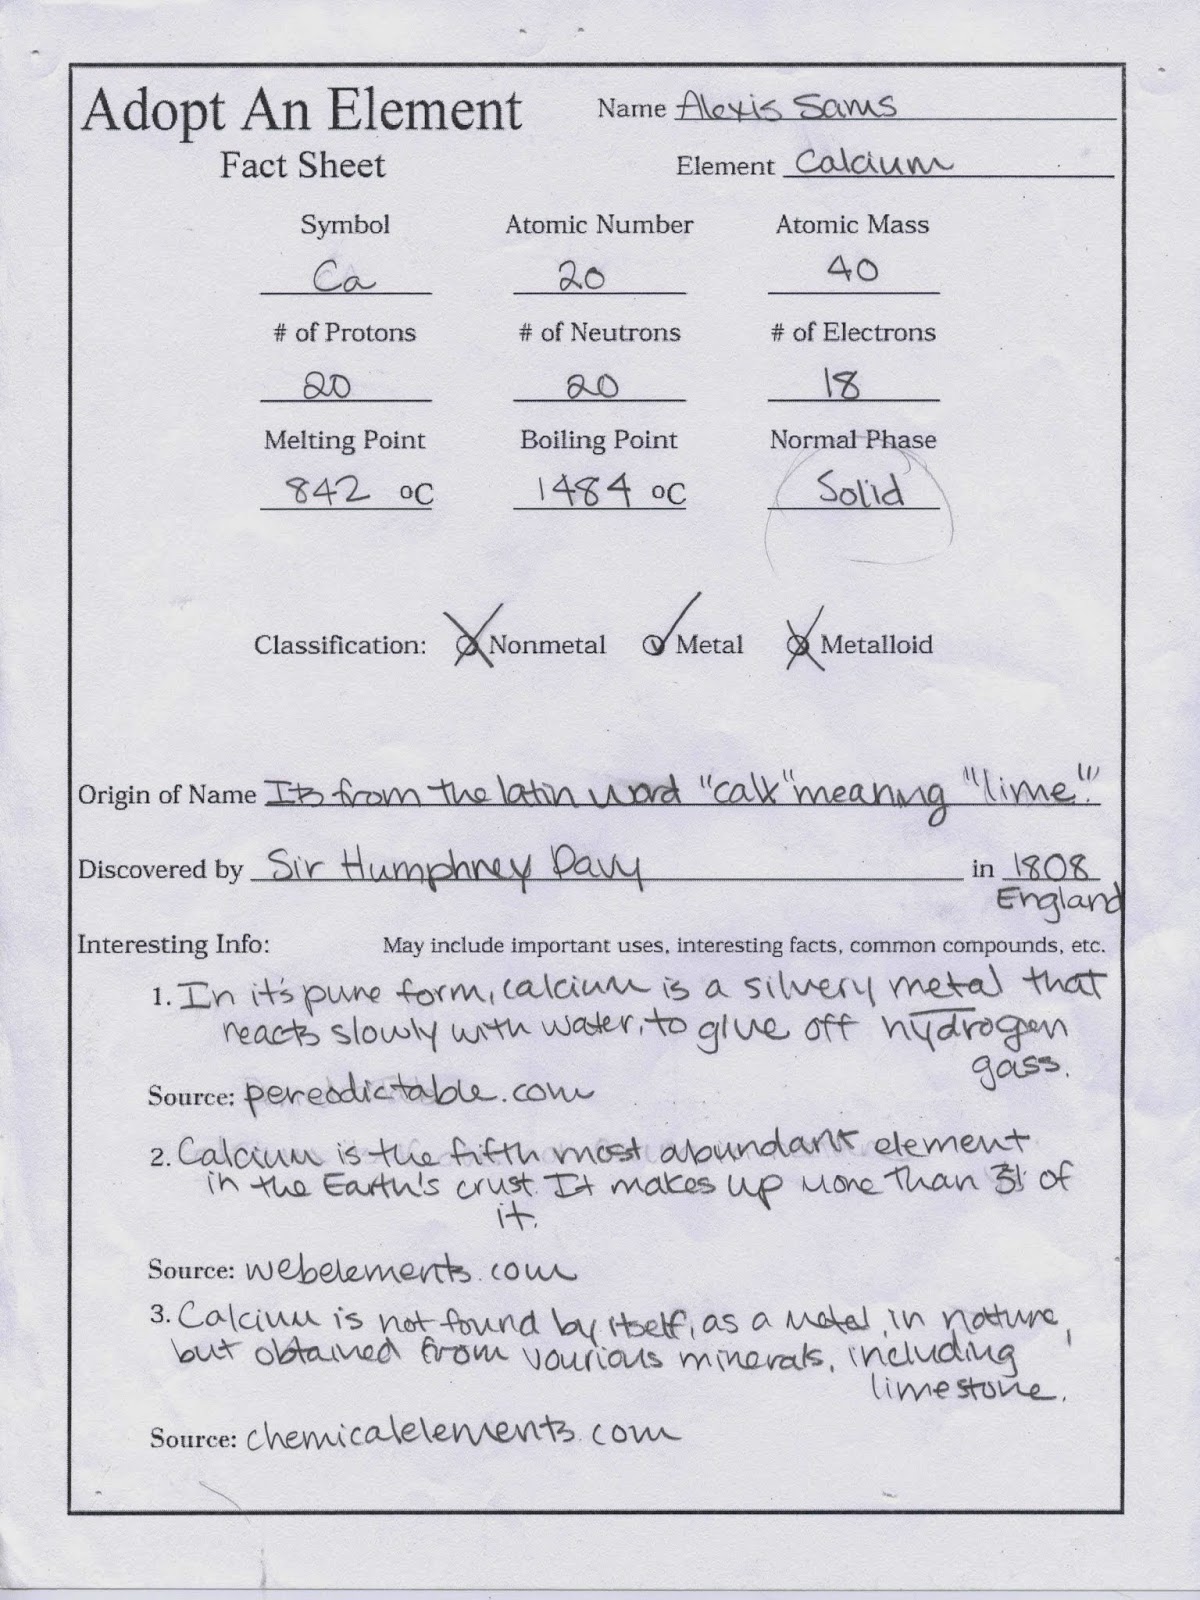 Adopt An Element
Name Alexis Sams
Fact Sheet
Element Calcium
Symbol Atomic Number Atomic Mass
Ca 20 40
# of Protons # of Neutrons # of Electrons
20 20 18
Melting Point Boiling Point Normal Phase
842 oC 1484 oC Solid
Classification: Nonmetal Metal Metalloid
Origin of Name Its from the latin word "calx" meaning "lime".
Discovered by Sir Humphrey Davy in 1808
England
Interesting Info: May include important uses, interesting facts, common compounds, etc.
1. In it's pure form, calcium is a silvery metal that
reacts slowly with water, to give off hydrogen
gass.
Source: pereodictable.com
2. Calcium is the fifth most abundant element
in the Earth's crust. It makes up more than of
it.
Source: webelements.com
3. Calcium is not found by itself, as a metal, in nature,
but obtained from vourious minerals, including
limestone.
Source: chemicalelements.com